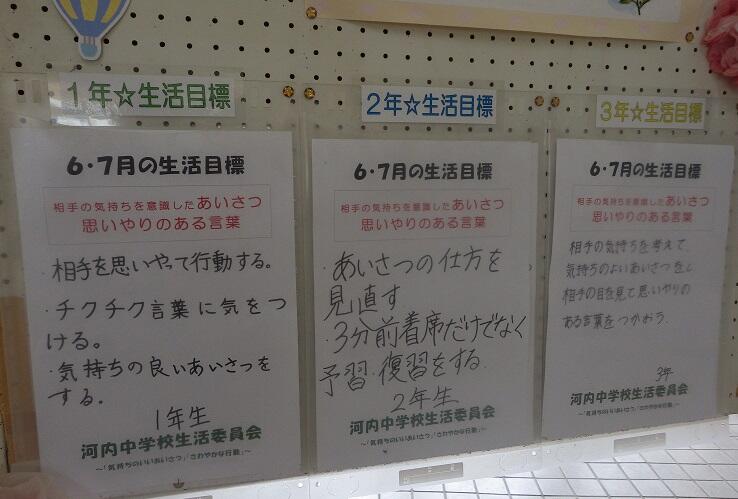 1年☆生活目標
6・7月の生活目標
相手の気持ちを意識したあいさつ
思いやりのある言葉
・相手を思いやって行動する。
・チクチク言葉に気をつ
ける。
・気持ちの良いあいさつを
する。
1年生
河内中学校生活委員会
～「気持ちのいいあいさつ」「さわやかな行動」～
2年☆生活目標
6・7月の生活目標
相手の気持ちを意識したあいさつ
思いやりのある言葉
・あいさつの仕方を
見直す
・3分前着席だけでなく
予習・復習をする。
2年生
河内中学校生活委員会
～「気持ちのいいあいさつ」「さわやかな行動」～
3年☆生活目標
6・7月の生活目標
相手の気持ちを意識したあいさつ
思いやりのある言葉
相手の気持ちを考えて、
気持ちのよいあいさつをし
相手の目を見て思いやりの
ある言葉をつかおう。
3年
河内中学校生活委員会
～「気持ちのいいあいさつ」「さわやかな行動」～